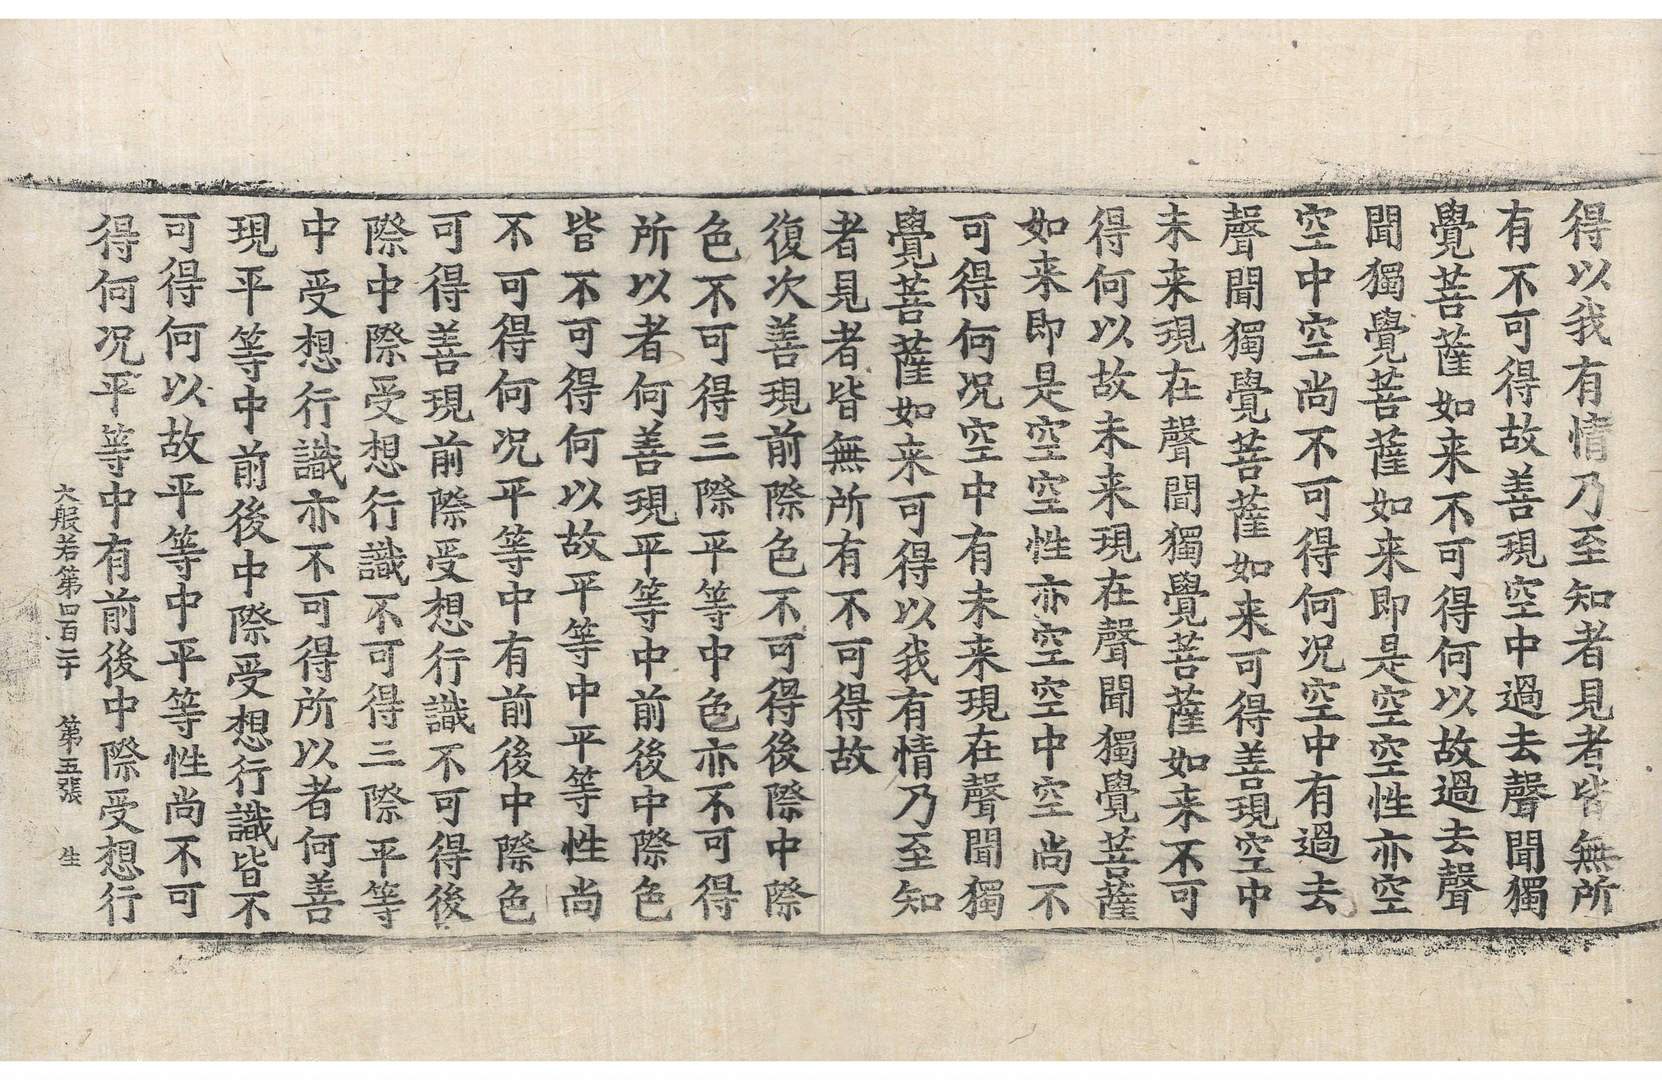 得以我有情乃至知者見者皆無所
有不可得故善現空中過去聲聞獨
覺菩薩如来不可得何以故過去聲
聞獨覺菩薩如来即是空空性亦空
空中空尚不可得何况空中有過去
聲聞獨覺菩薩如来可得善現空中
未来現在聲聞獨覺菩薩如来不可
得何以故未来現在聲聞獨覺菩薩
如来即是空空性亦空空中空尚不
可得何况空中有未来現在聲聞獨
覺菩薩如来可得以我有情乃至知
者見者皆無所有不可得故
復次善現前際色不可得後際中際
色不可得三際平等中色亦不可得
所以者何善現平等中前後中際色
皆不可得何以故平等中平等性尚
不可得何况平等中有前後中際色
可得善現前際受想行識不可得後
際中際受想行識不可得三際平等
中受想行識亦不可得所以者何善
現平等中前後中際受想行識皆不
可得何以故平等中平等性尚不可
得何况平等中有前後中際受想行
大般若第四百二十 第五張 生